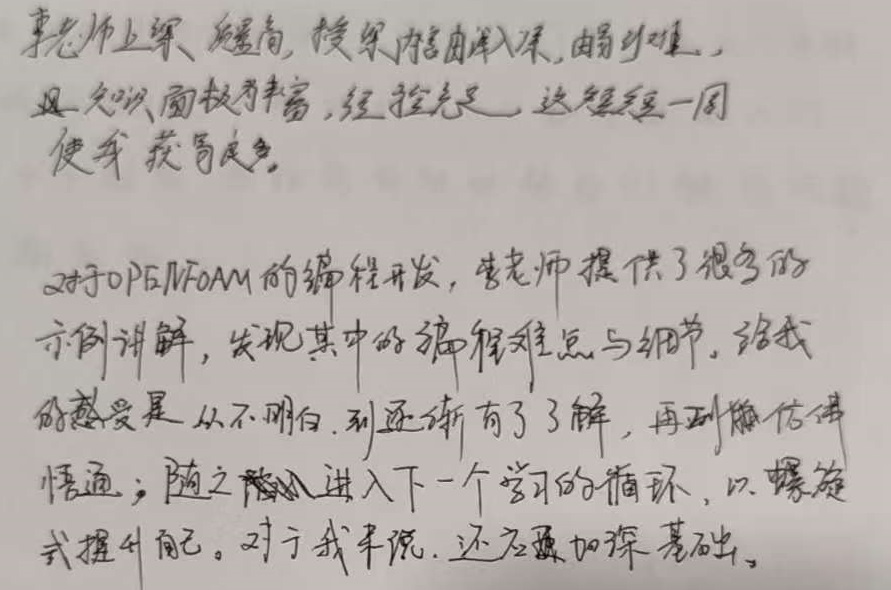 李老师上课质量高，授课内容由浅入深，由易到难，
且知识面极为丰富，经验充足，这短短一周
使我获益良多。
对于OPENFOAM的编程开发，李老师提供了很多的
示例讲解，发现其中的编程难点与细节。给我
的感受是从不明白，到逐渐有了了解，再到仿佛
悟通；随之进入下一个学习的循环，以螺旋
式提升自己。对于我来说，还应加深基础。